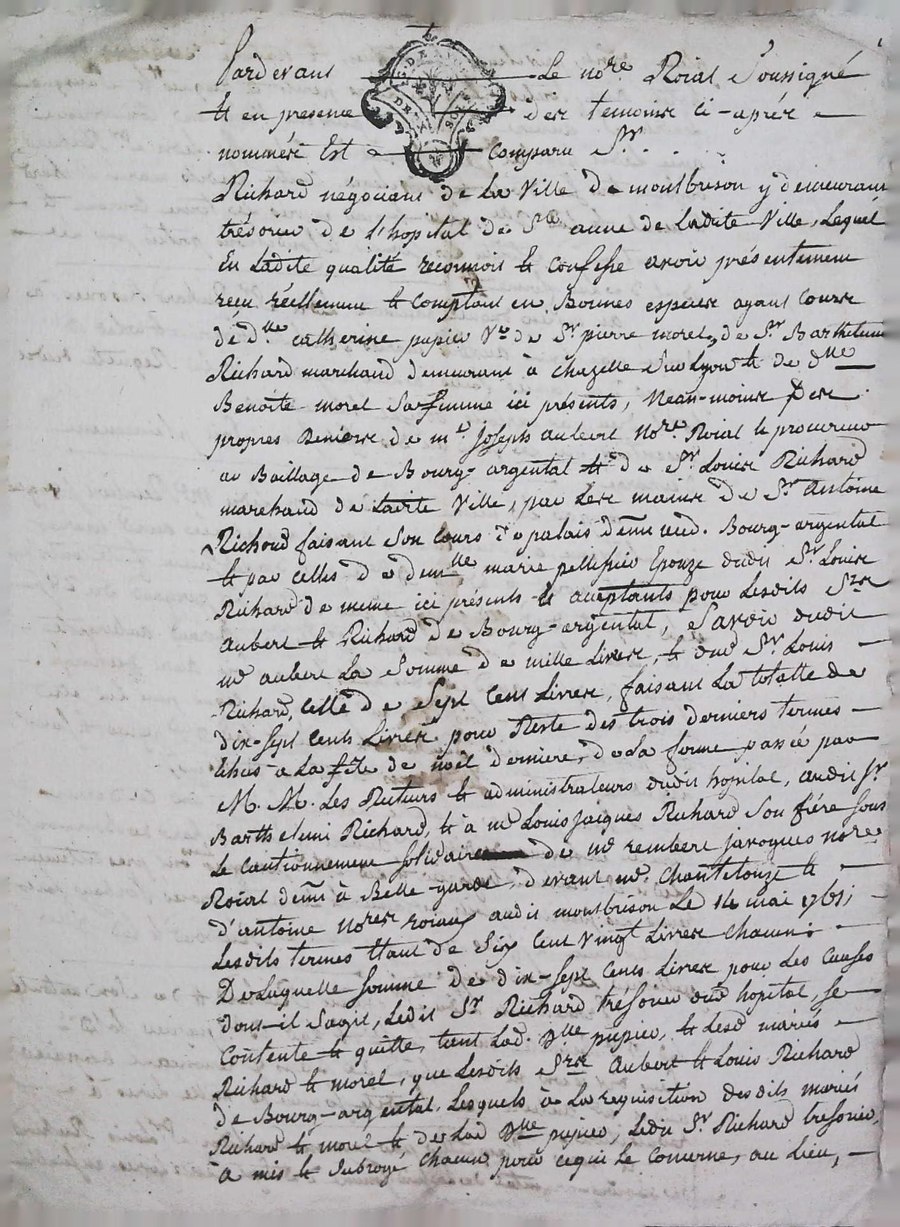 Pardevant Le nore Roial Soussigné
& en presence des temoins ci-aprés
nommés Est comparu Sr. . .
Richard négociant de La Ville de montbrison y demeurant
trésorier de L'hopital de Ste anne de Ladite Ville, Lequel
En Ladite qualité reconnoit & confesse avoir présentement
reçu réellement & comptant en Bonnes especes ayant Cours
de dlle catherine pupier Ve de Sr pierre morel, de Sr Barthelemi
Richard marchand demeurant à chazelle Sur Lyon & de dlle
Benoite morel Sa femme ici présents, Nean-moins des
propres deniers de me Joseph aubert Nore Roial & procureur
au Baillage de Bourg-argental & de Sr Louis Richard
marchand de Ladite Ville, par Les mains de Sr antoine
Richard faisant Son Cours de palais demt aud. Bourg-argental
& par celles de demlle marie pellissier Epouze dudit Sr Louis
Richard de meme ici présents & acceptants pour Lesdits Srs
aubert & Richard de Bourg-argental, Savoir dudit
me aubert La Somme de mille Livres, & dud Sr Louis
Richard, celle de Sept Cent Livres, faisant La totalle de
dix-Sept Cents Livres pour Reste des trois derniers termes
Echus a La fête de noël derniere, de La ferme passée par
M. M. Les Recteurs & administrateurs dudit hopital, audit Sr
Barthelemi Richard, & à me Louis jacques Richard Son frére Sous
Le cautionnement Solidaire de me rembert javogues nore
Roial demt à Belle-garde, devant me Chantelouze &
d'antoine nores roiaux audit montbrison Le 14 mai 1761;
Lesdits termes Etant de Six Cent vingt Livres chacun;
De Laquelle Somme de dix-Sept Cents Livres pour Les Causes
dont-il S'agit, Ledit Sr Richard trésorier dud hopital, se
Contente & quitte, tient Lad. dlle pupier, & Lesd mariés
Richard & morel, que Lesdits Srs Aubert & Louis Richard
de Bourg-argental. Lesquels à La requisition desdits mariés
Richard & morel & de Lad dlle pupier, Ledit Sr Richard tresorier,
à mis & Subrogé chacun pour ce qui Le Concerne, au Lieu,